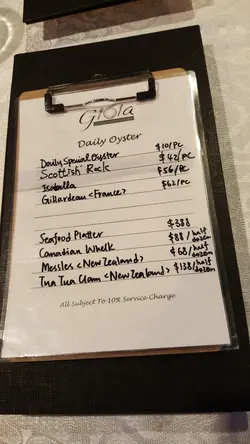 Gioia
Daily Oyster
Daily Special Oyster $10/PC
Scottish Rock $42/PC
Isabella $56/PC
Gillardeau <France> $62/PC
Seafood Platter $388
Canadian Whelk $88/half dozen
Messles <New Zealand> $68/half dozen
Tua Tua Clam <New Zealand> $138/half dozen
All Subject To 10% Service Charge